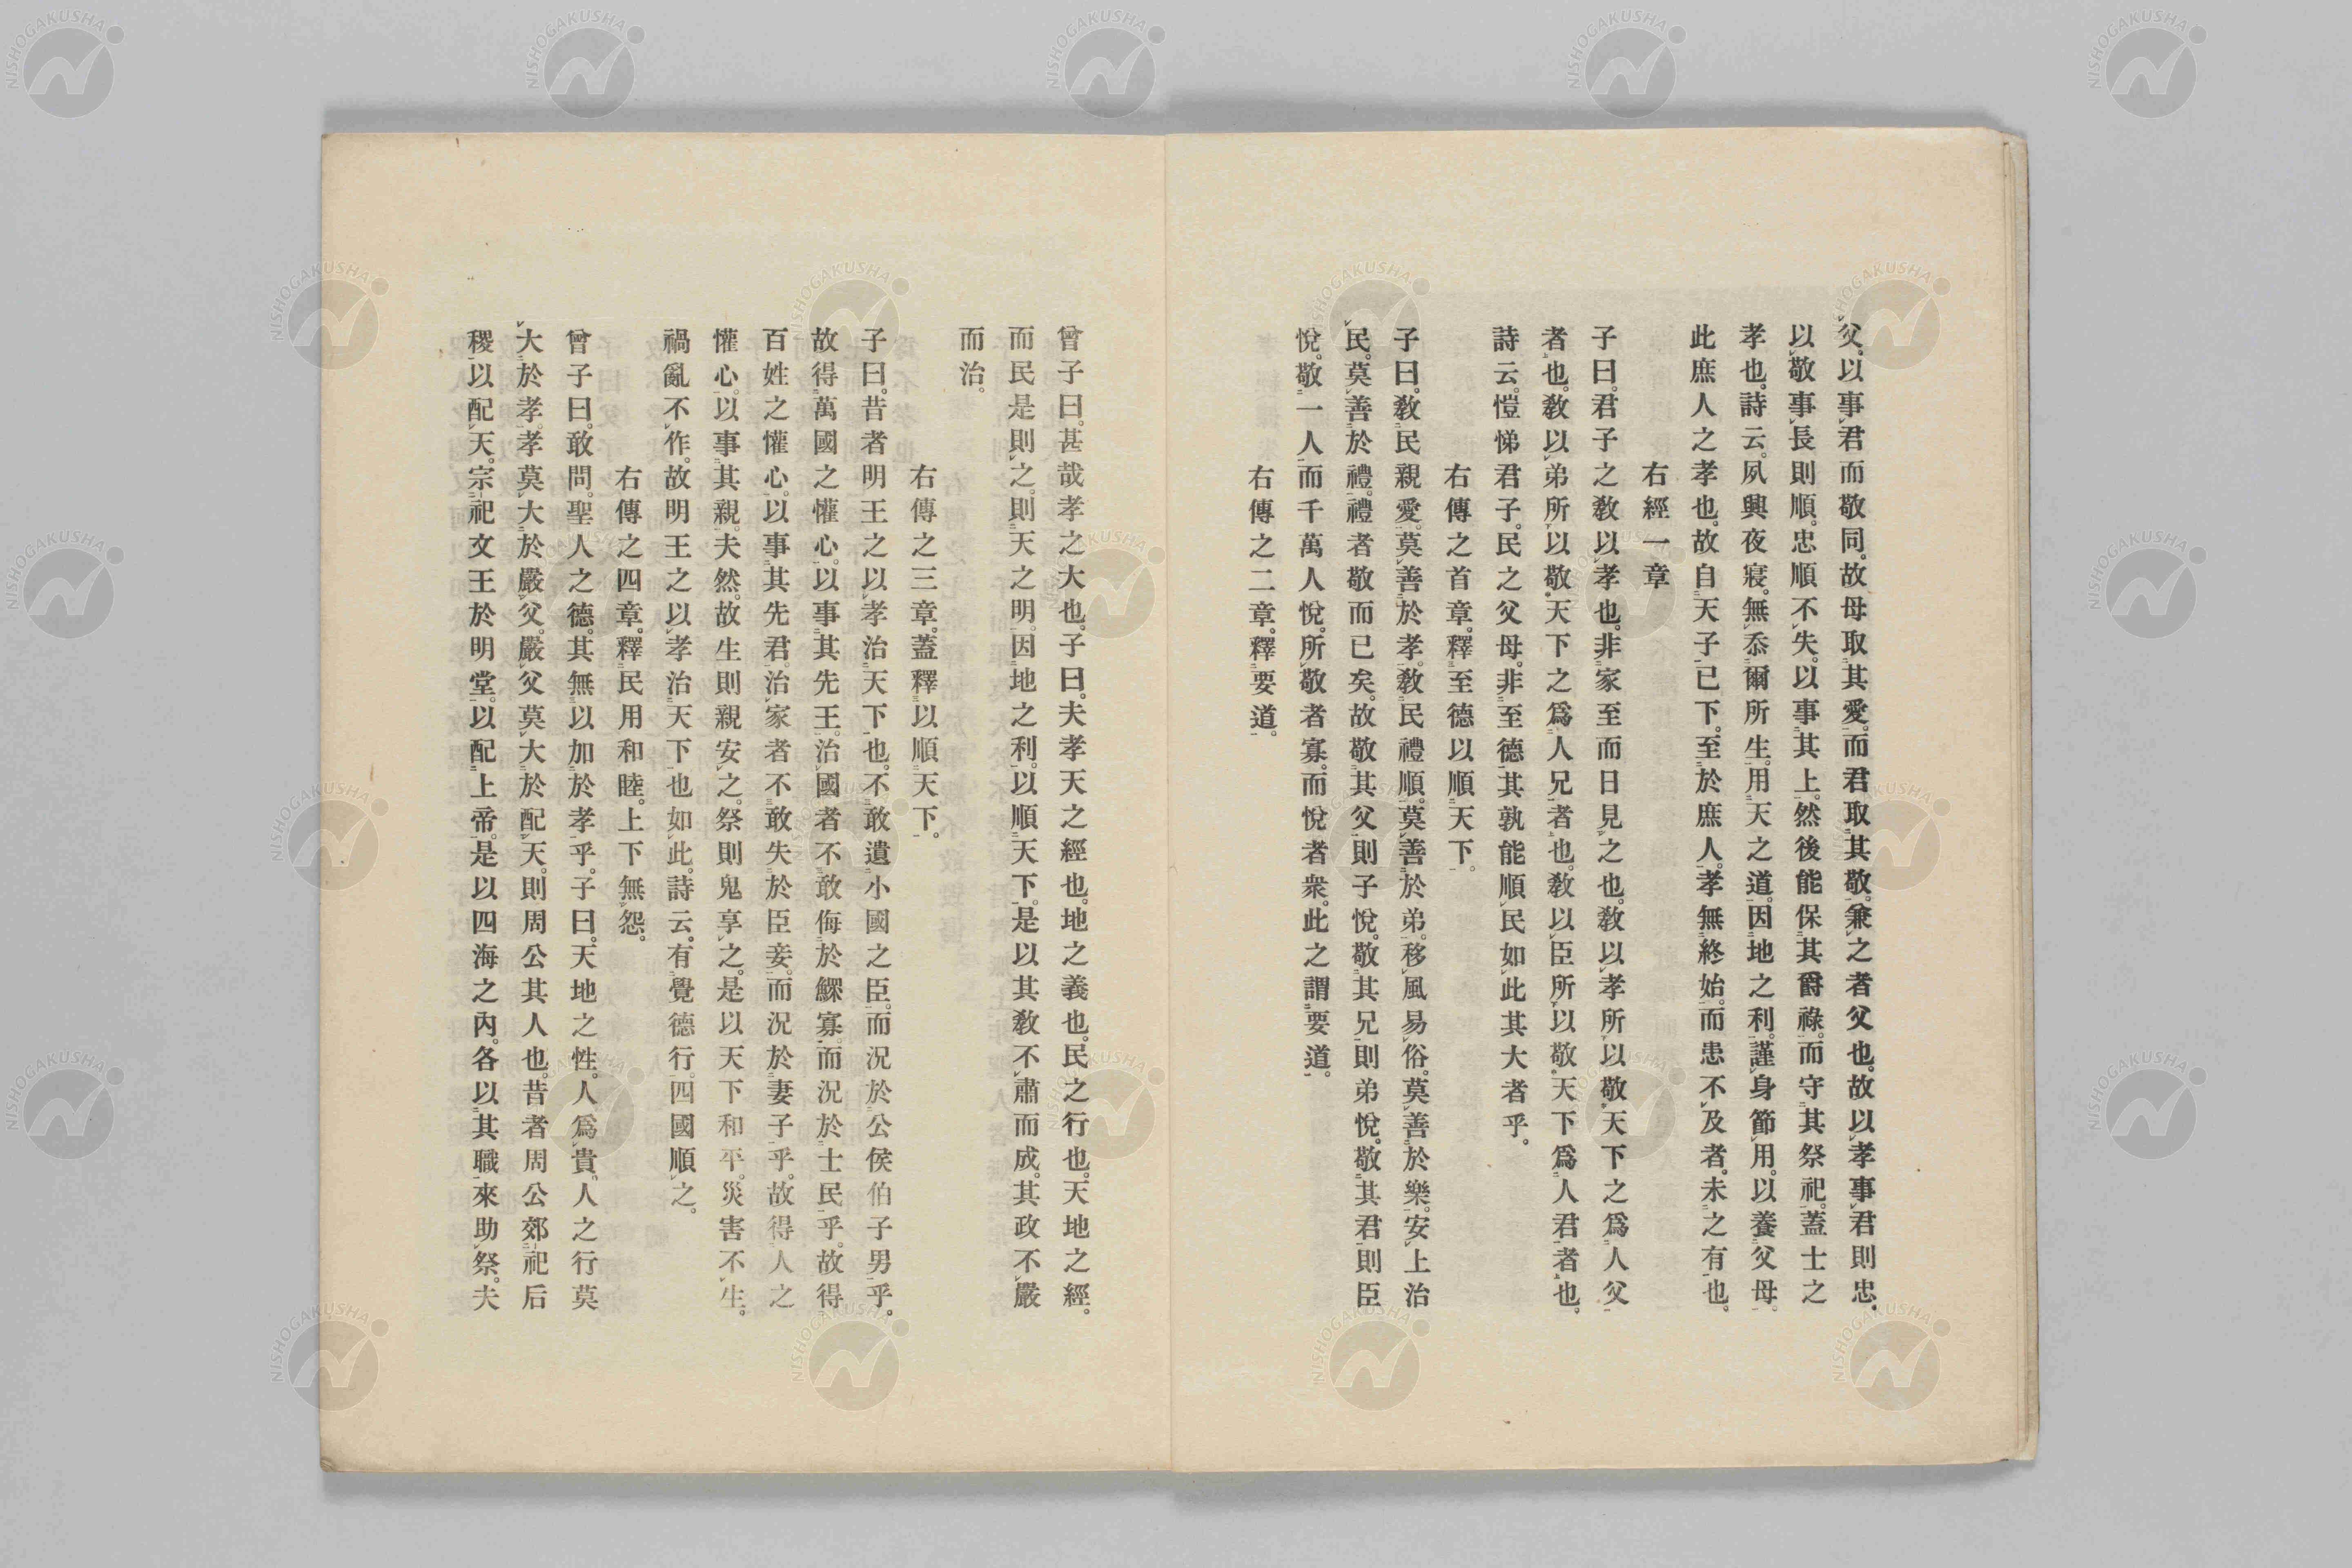 父。以事君而敬同。故母取其愛。而君取其敬。兼之者父也。故以孝事君則忠。
以敬事長則順。忠順不失。以事其上。然後能保其爵祿。而守其祭祀。蓋士之
孝也。詩云。夙興夜寢。無忝爾所生。用天之道。因地之利。謹身節用。以養父母。
此庶人之孝也。故自天子已下。至於庶人。孝無終始。而患不及者。未之有也。
右經一章
子曰。君子之敎以孝也。非家至而日見之也。敎以孝所以敬天下之爲人父
者也。敎以弟所以敬天下之爲人兄者也。敎以臣所以敬天下爲人君者也。
詩云。愷悌君子。民之父母。非至德其孰能順民如此其大者乎。
右傳之首章。釋至德以順天下。
子曰。敎民親愛。莫善於孝。敎民禮順。莫善於弟。移風易俗。莫善於樂。安上治
民。莫善於禮。禮者敬而已矣。故敬其父則子悅。敬其兄則弟悅。敬其君則臣
悅。敬一人而千萬人悅。所敬者寡。而悅者衆。此之謂要道。
右傳之二章。釋要道。
曾子曰。甚哉孝之大也。子曰。夫孝天之經也。地之義也。民之行也。天地之經。
而民是則之。則天之明。因地之利。以順天下。是以其敎不肅而成。其政不嚴
而治。
右傳之三章。蓋釋以順天下。
子曰。昔者明王之以孝治天下也。不敢遺小國之臣。而況於公侯伯子男乎。
故得萬國之懽心。以事其先王。治國者不敢侮於鰥寡。而況於士民乎。故得
百姓之懽心。以事其先君。治家者不敢失於臣妾。而況於妻子乎。故得人之
懽心。以事其親。夫然。故生則親安之。祭則鬼享之。是以天下和平。災害不生。
禍亂不作。故明王之以孝治天下也如此。詩云。有覺德行。四國順之。
右傳之四章。釋民用和睦。上下無怨。
曾子曰。敢問。聖人之德。其無以加於孝乎。子曰。天地之性。人爲貴。人之行莫
大於孝。孝莫大於嚴父。嚴父莫大於配天。則周公其人也。昔者周公郊祀后
稷以配天。宗祀文王於明堂。以配上帝。是以四海之內。各以其職來助祭。夫
NISHOGAKUSHA